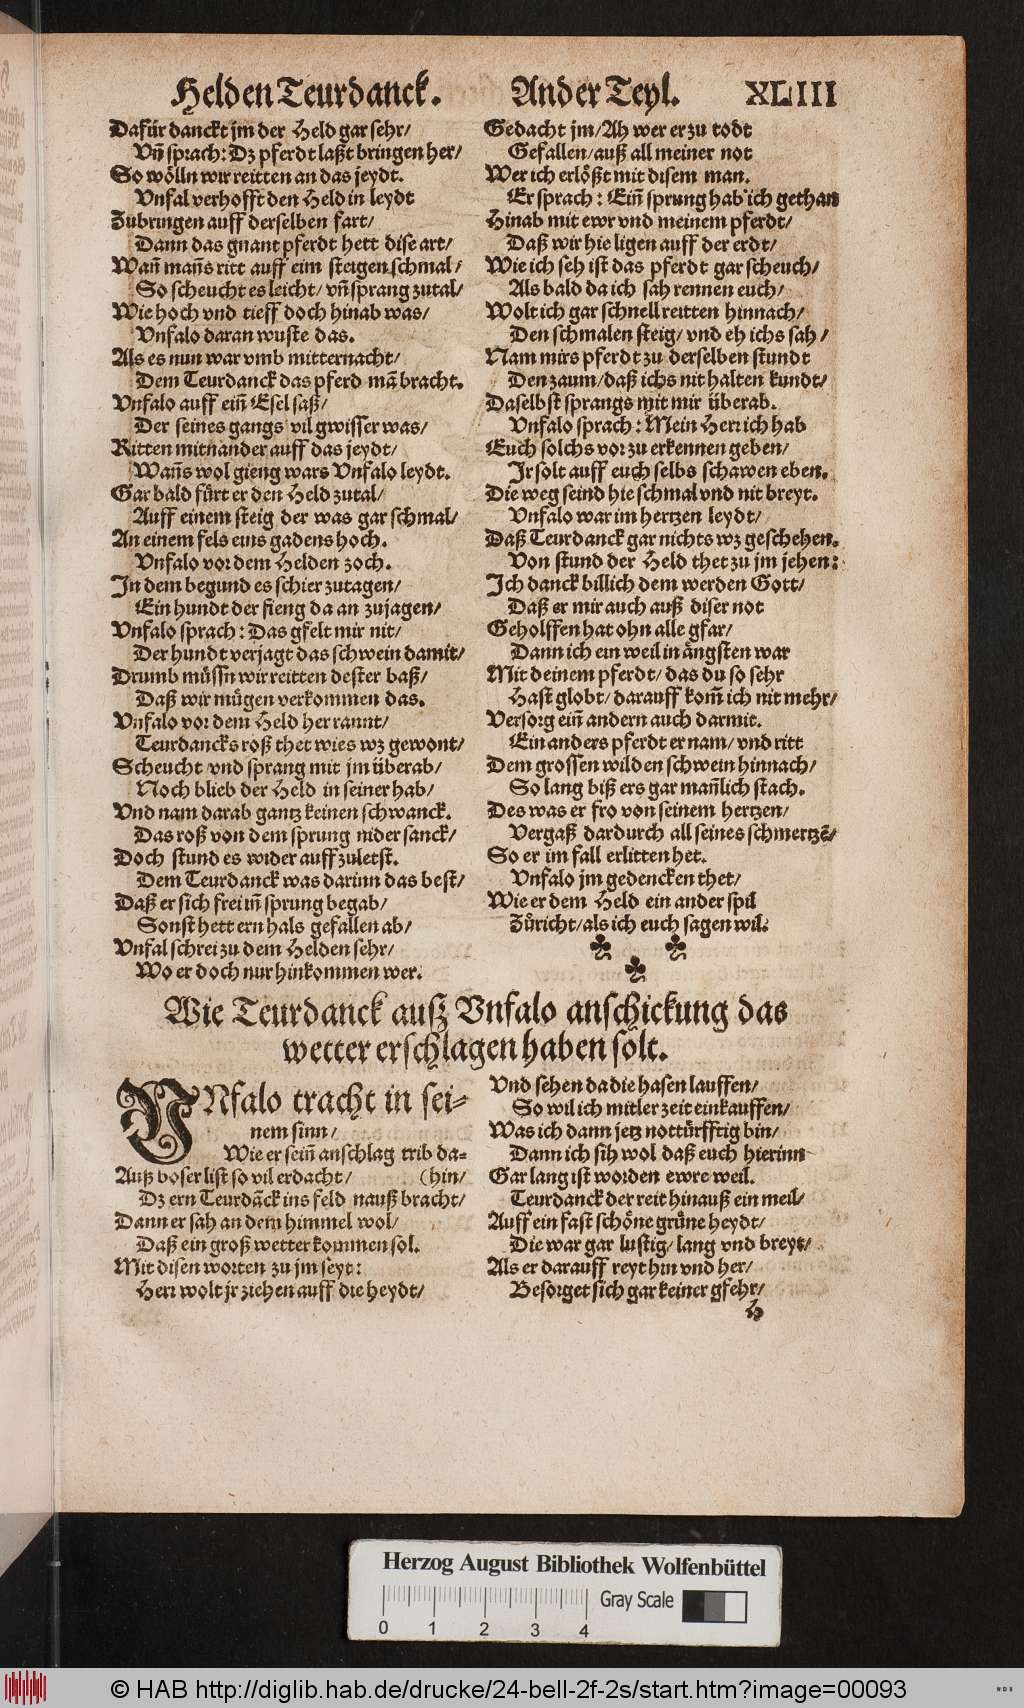 Helden Teurdanck. Ander Teyl. XLIII
Dafür danckt jm der Held gar sehr/
Vñ sprach: Dz pferdt laßt bringen her/
So wölln wir reitten an das jeydt.
Vnfal verhofft den Held in leydt
Zubringen auff derselben fart/
Dann das gnant pferdt hett dise art/
Wañ mañs ritt auff eim steigen schmal/
So scheucht es leicht/ vñ sprang zutal/
Wie hoch vnd tieff doch hinab was/
Vnfalo daran wuste das.
Als es nun war vmb mitternacht/
Dem Teurdanck das pferd mã bracht.
Vnfalo auff eiñ Esel saß/
Der seines gangs vil gwisser was/
Ritten mitnander auff das jeydt/
Wañs wol gieng wars Vnfalo leydt.
Gar bald fürt er den Held zutal/
Auff einem steig der was gar schmal/
An einem fels eins gadens hoch.
Vnfalo vor dem Helden zoch.
In dem begund es schier zutagen/
Ein hundt der fieng da an zujagen/
Vnfalo sprach: Das gfelt mir nit/
Der hundt verjagt das schwein damit/
Drumb müssn wir reitten dester baß/
Daß wir mügen verkommen das.
Vnfalo vor dem Held her rannt/
Teurdancks roß thet wies wz gewont/
Scheucht vnd sprang mit jm überab/
Noch blieb der Held in seiner hab/
Vnd nam darab gantz keinen schwanck.
Das roß von dem sprung nider sanck/
Doch stund es wider auff zuletst.
Dem Teurdanck was darinn das best/
Daß er sich frei iñ sprung begab/
Sonst hett ern hals gefallen ab/
Vnfal schrei zu dem Helden sehr/
Wo er doch nur hinkommen wer.
Gedacht jm/ Ah wer er zu todt
Gefallen/ auß all meiner not
Wer ich erlößt mit disem man.
Er sprach: Eiñ sprung hab ich gethan
Hinab mit ewr vnd meinem pferdt/
Daß wir hie ligen auff der erdt/
Wie ich seh ist das pferdt gar scheuch/
Als bald da ich sah rennen euch/
Wolt ich gar schnell reitten hinnach/
Den schmalen steig/ vnd eh ichs sah/
Nam mirs pferdt zu derselben stundt
Den zaum/ daß ichs nit halten kundt/
Daselbst sprangs mit mir überab.
Vnfalo sprach: Mein Herr ich hab
Euch solchs vor zu erkennen geben/
Jr solt auff euch selbs schawen eben.
Die weg seind hie schmal vnd nit breyt.
Vnfalo war im hertzen leydt/
Daß Teurdanck gar nichts wz geschehen.
Von stund der Held thet zu jm jehen:
Ich danck billich dem werden Gott/
Daß er mir auch auß diser not
Geholffen hat ohn alle gfar/
Dann ich ein weil in ängsten war
Mit deinem pferdt/ das du so sehr
Hast globt/ darauff kom̃ ich nit mehr/
Versorg eiñ andern auch darmit.
Ein anders pferdt er nam/ vnd ritt
Dem grossen wilden schwein hinnach/
So lang biß ers gar mañlich stach.
Des was er fro von seinem hertzen/
Vergaß dardurch all seines schmertzẽ/
So er im fall erlitten het.
Vnfalo jm gedencken thet/
Wie er dem Held ein ander spil
Züricht/ als ich euch sagen wil.
Wie Teurdanck auß Vnfalo anschickung das
wetter erschlagen haben solt.
VNfalo tracht in sei-
nem sinn/
Wie er seiñ anschlag trib da-
Auß boser list so vil erdacht/ (hin/
Dz ern Teurdãck ins feld nauß bracht/
Dann er sah an dem himmel wol/
Daß ein groß wetter kommen sol.
Mit disen worten zu jm seyt:
Herr wolt jr ziehen auff die heydt/
Vnd sehen da die hasen lauffen/
So wil ich mitler zeit einkauffen/
Was ich dann jetz nottürfftig bin/
Dann ich sih wol daß euch hierinn
Gar lang ist worden ewre weil.
Teurdanck der reit hinauß ein meil/
Auff ein fast schöne grüne heydt/
Die war gar lustig/ lang vnd breyt/
Als er darauff reyt hin vnd her/
Besorget sich gar keiner gfehr/
H
Herzog August Bibliothek Wolfenbüttel
Gray Scale
0 1 2 3 4
© HAB http://diglib.hab.de/drucke/24-bell-2f-2s/start.htm?image=00093